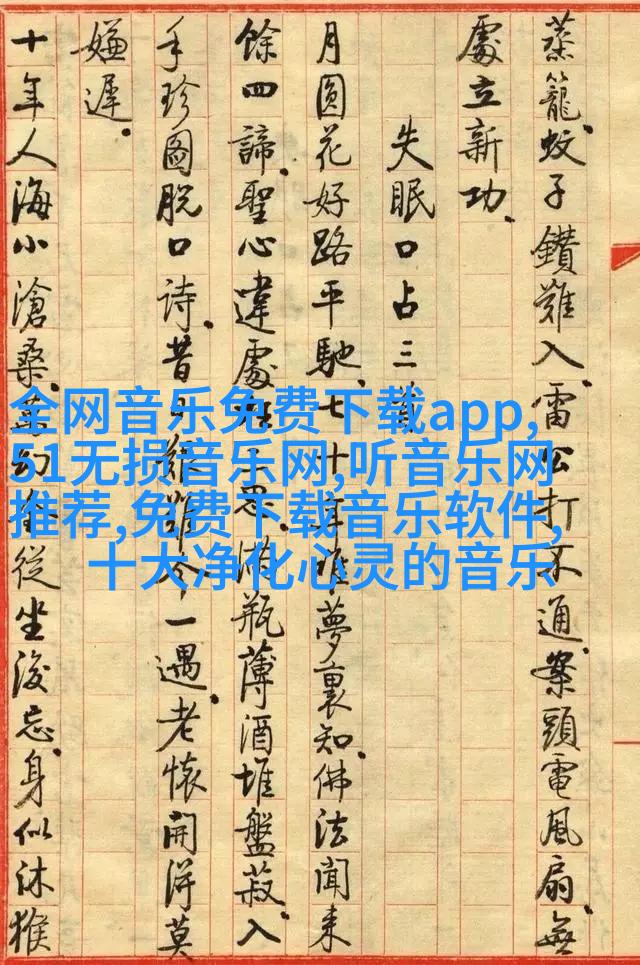 蒸籠.蚊子鑽難入.雷公打不通.案頭電風扇.無
處立新功.
失眠口占三
月圓花好路平馳.七年夢裏知.佛法聞来
餘四諦.聖心違處思.滿瓶薄酒堆盤菽.入
手珍圖脱口詩.昔今一遇.老懷開得莫
嫌遲.
十年人海小滄桑.幻從坐後忘.身似沐猴
全网音乐免费下载app,
51无损音乐网,听音乐网
推荐,免费下载音乐软件,
十大净化心灵的音乐